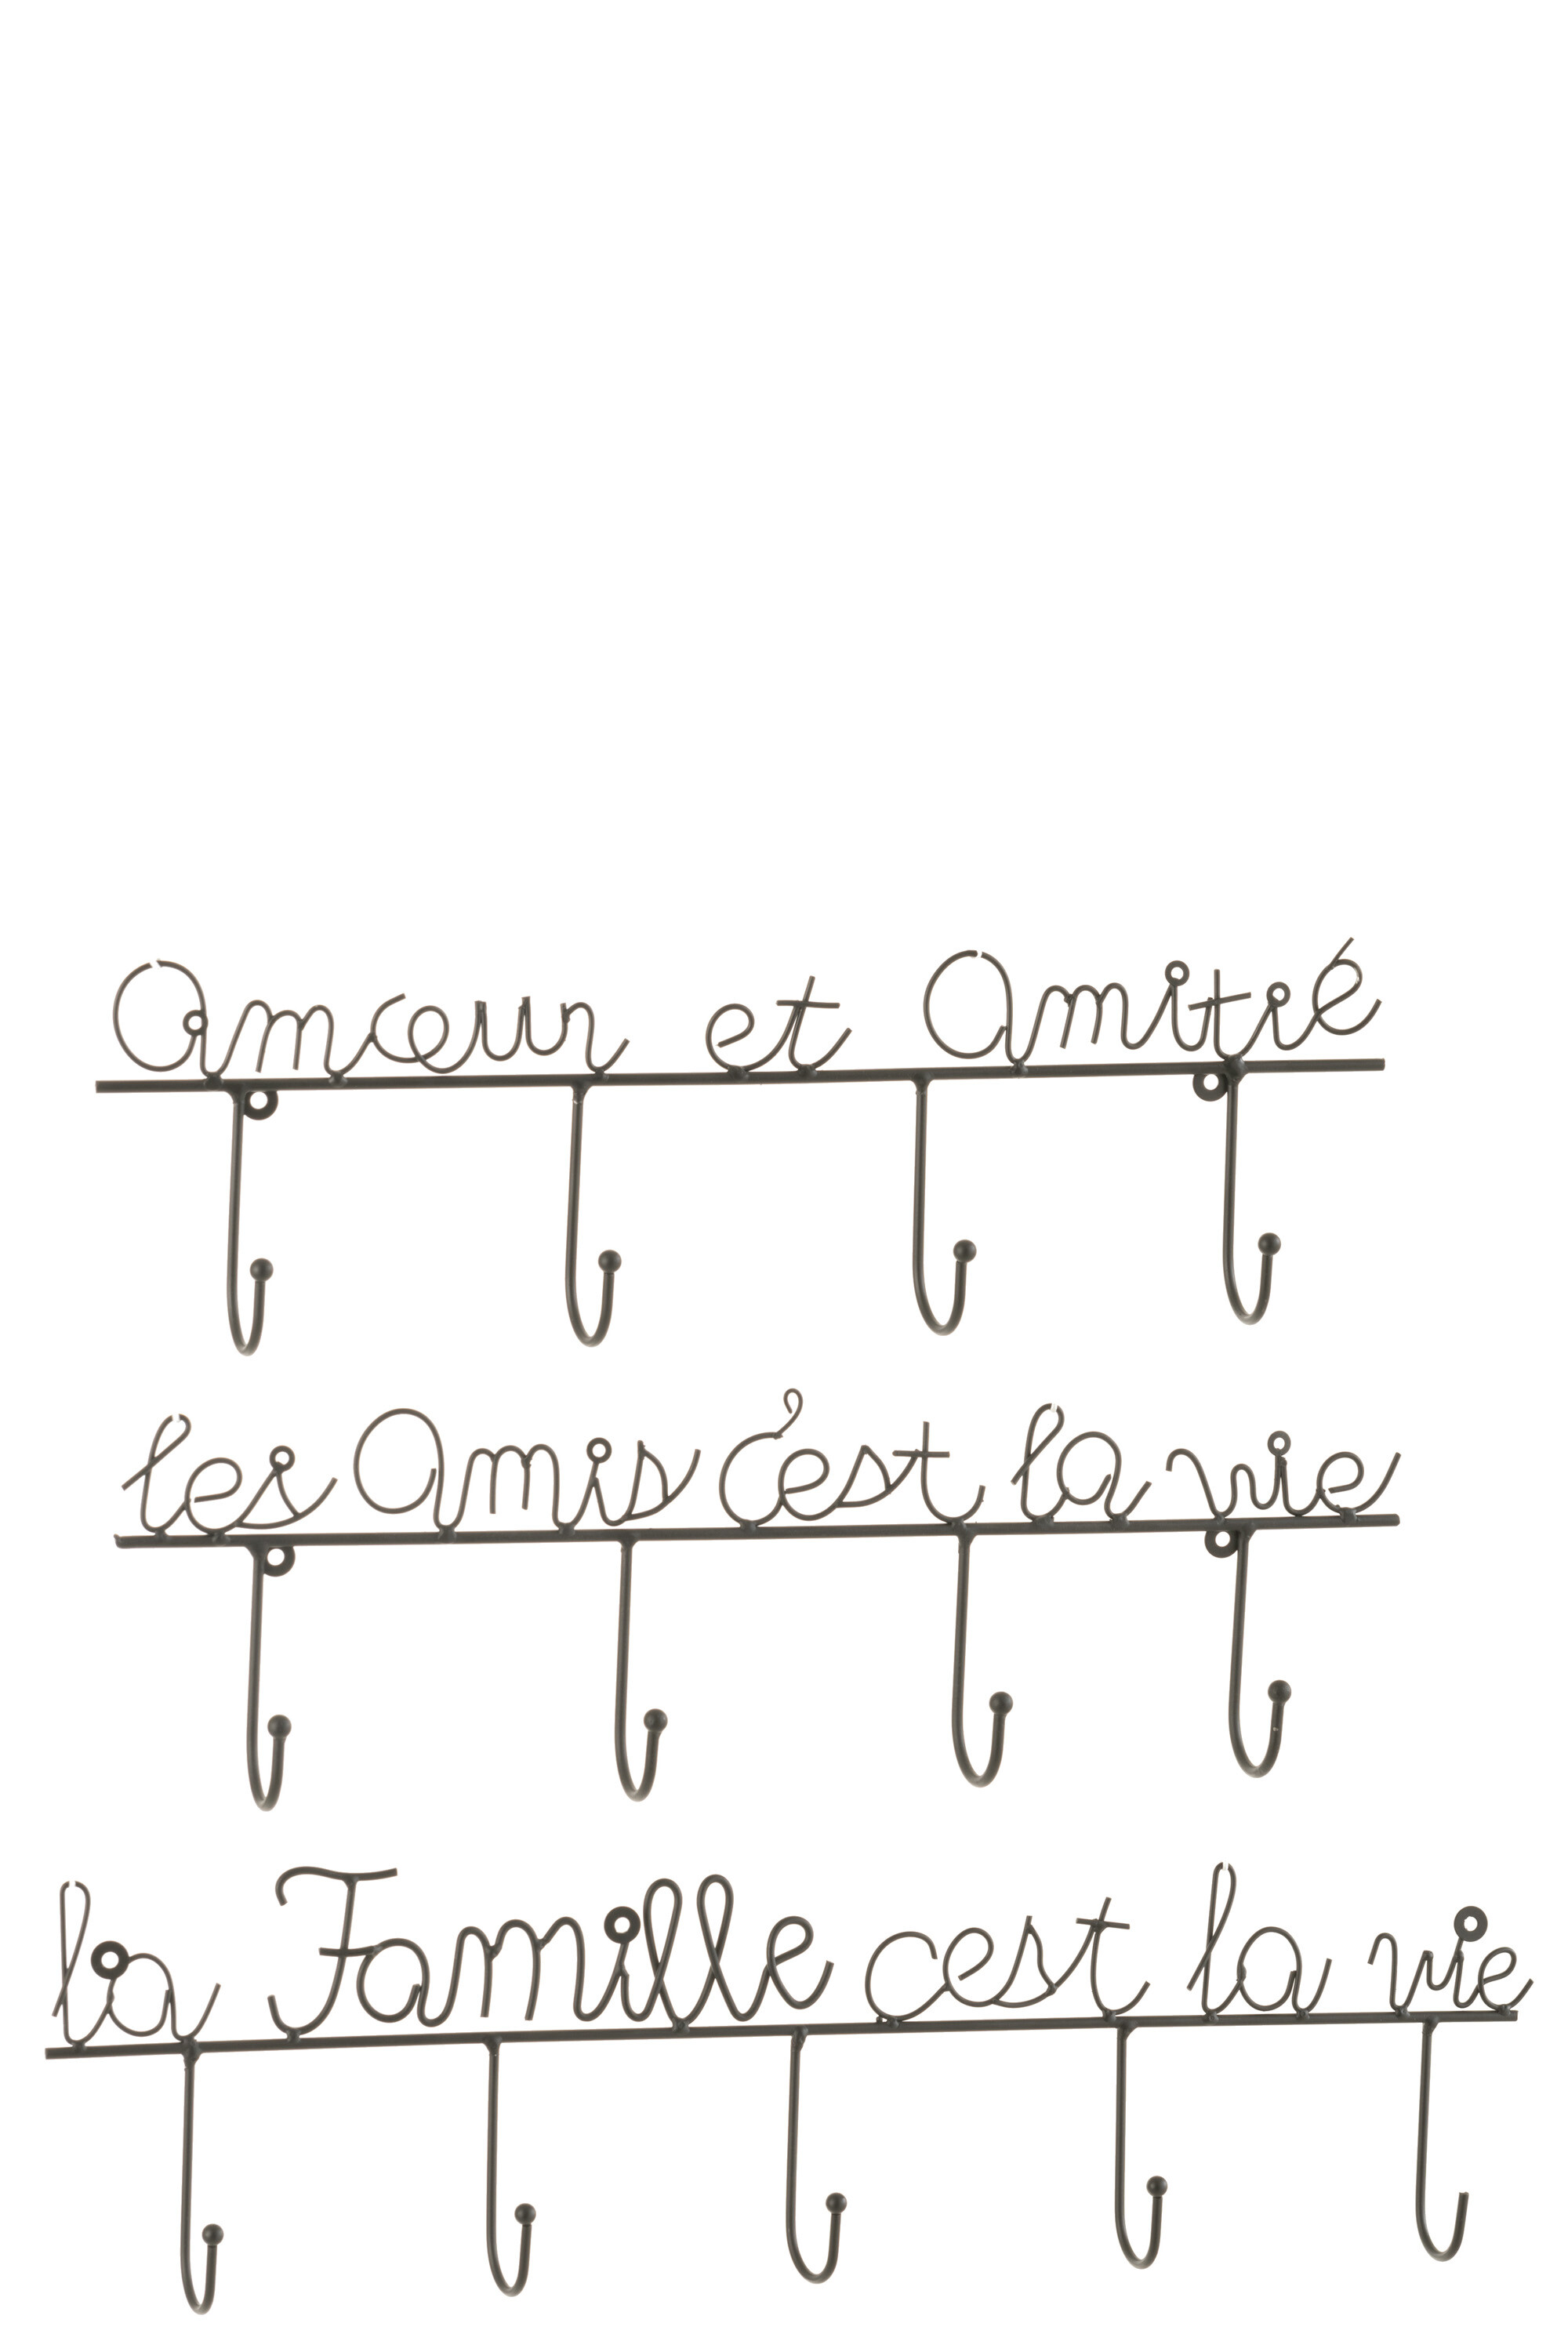 Amour et Amitié
les Amis c'est la vie
la Famille cest la vie